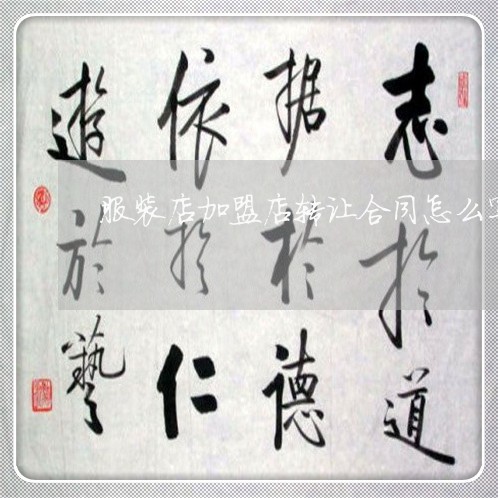 志於道
据於德
依於仁
遊於藝
服装店加盟店转让合同怎么